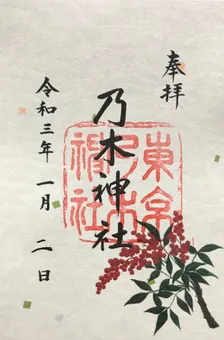 奉拝
乃木神社
東京乃木神社
令和三年 一月 二日